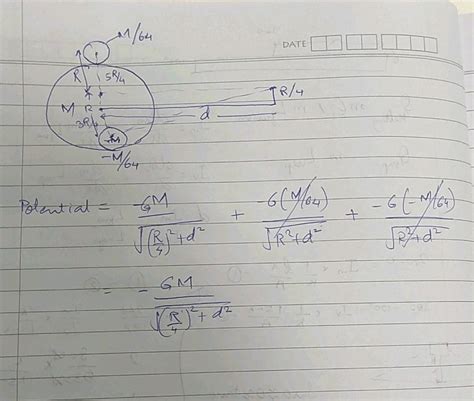 DATE
M/64
R
5R/4
M
R
3R/4
-M
-M/64
d
R/4
Potential = -GM/√((R/4)²+d²) + -G(M/64)/√(R²+d²) + -G(-M/64)/√(R²+d²)
= - GM/√((R/4)²+d²)